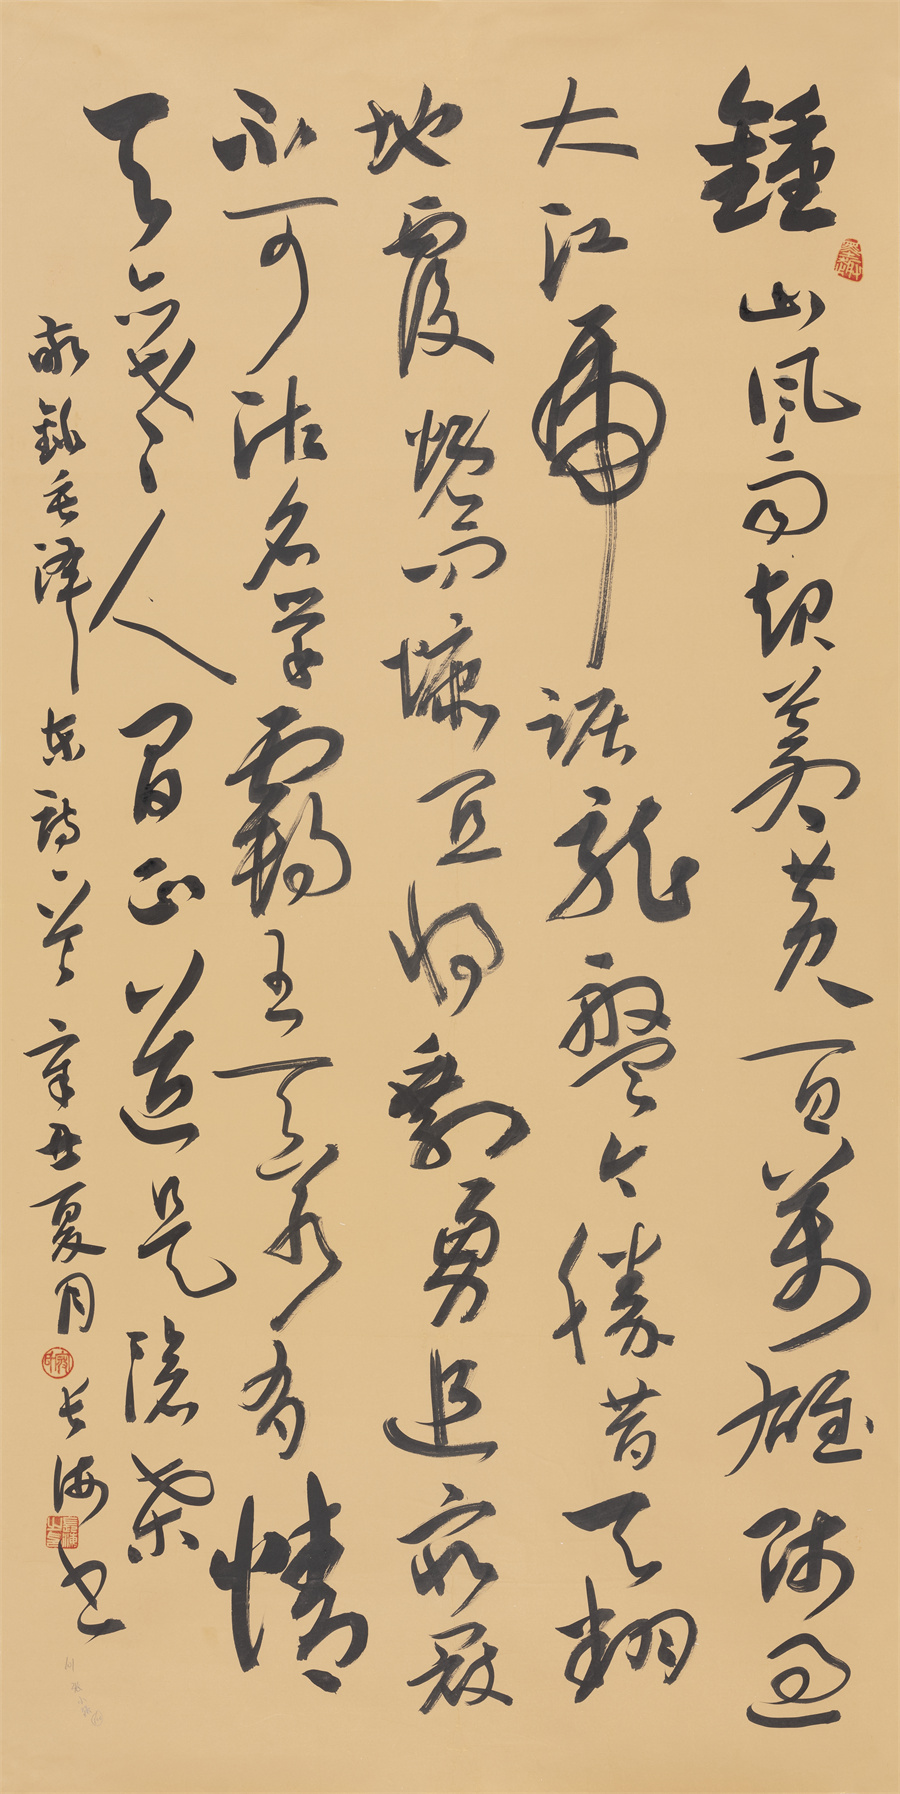 鍾山風雨起蒼黃百萬雄師過
大江虎踞龍盤今勝昔天翻
地覆慨而慷宜將剩勇追窮寇
不可沽名學霸王天若有情
天亦老人間正道是滄桑
敬錄毛澤東詩一首辛丑夏月长海书